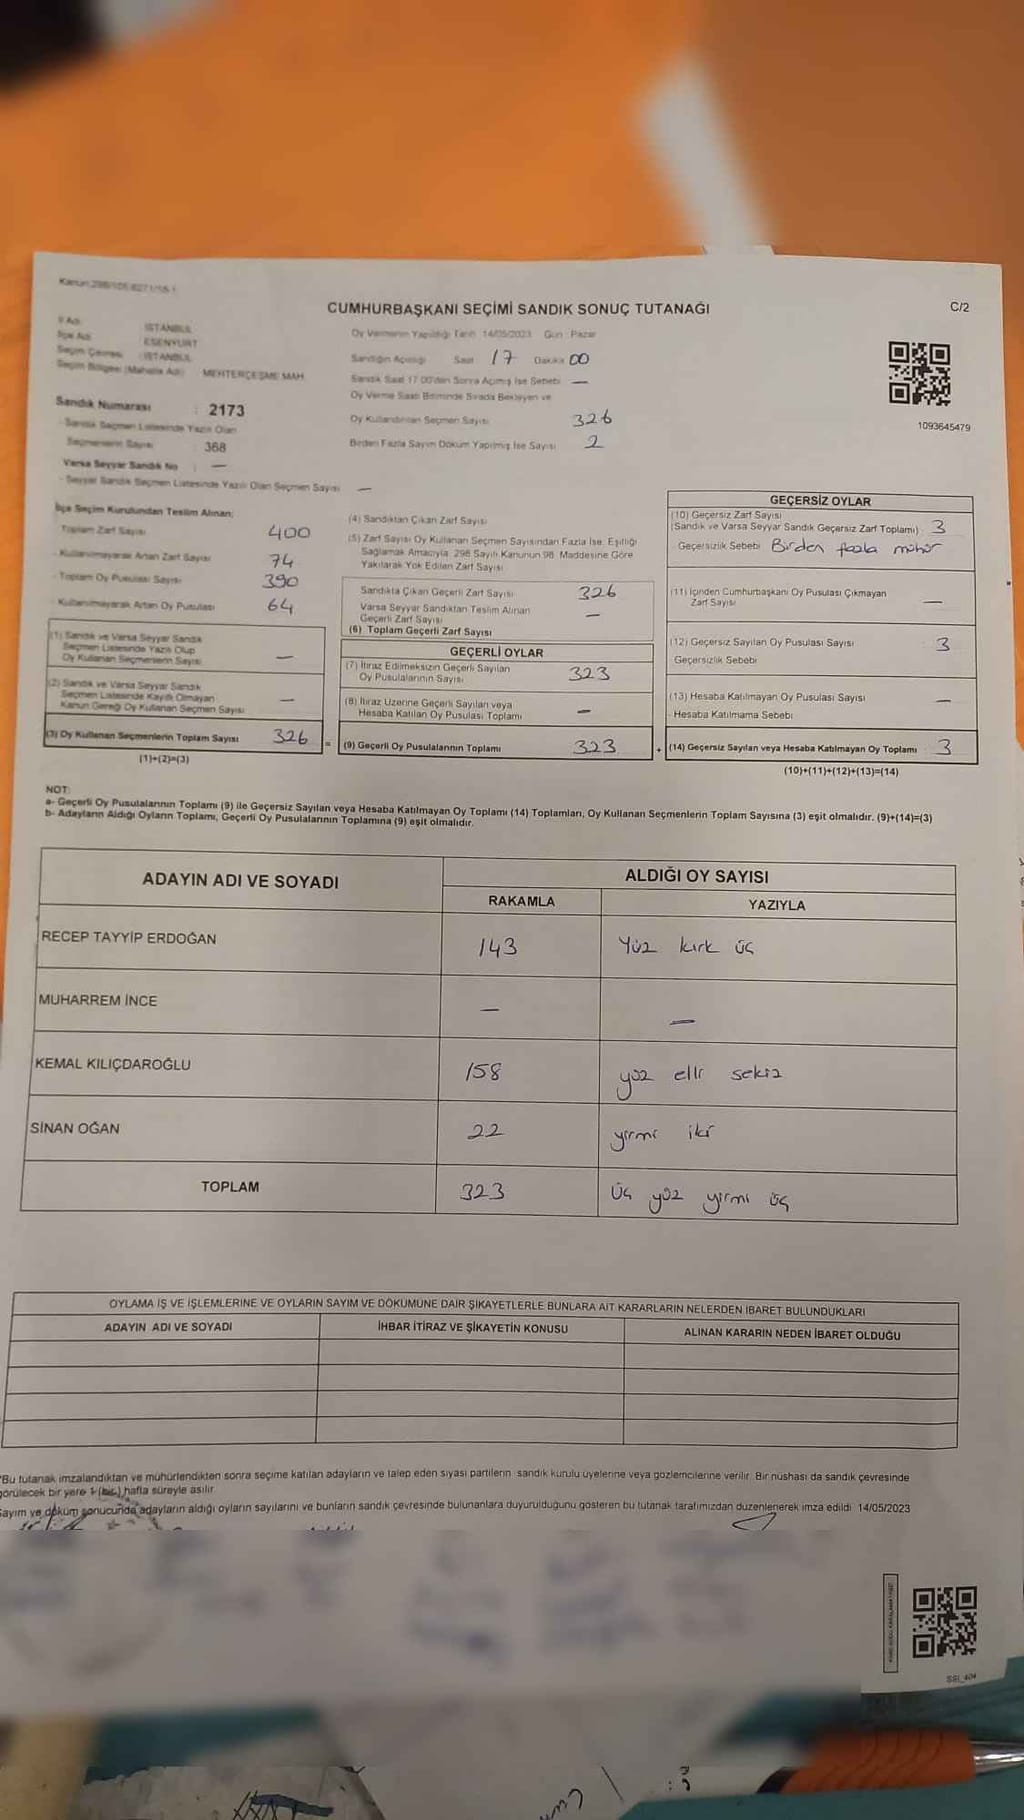 Kanun 298/105-6271/18-1
CUMHURBAŞKANI SEÇİMİ SANDIK SONUÇ TUTANAĞI
C/2
İl Adı : İSTANBUL
İlçe Adı : ESENYURT
Seçim Çevresi : İSTANBUL
Seçim Bölgesi (Mahalle Adı) : MEHTERÇEŞME MAH.
Sandık Numarası : 2173
- Sandık Seçmen Listesinde Yazılı Olan
Seçmenlerin Sayısı : 368
Varsa Seyyar Sandık No : —
- Seyyar Sandık Seçmen Listesinde Yazılı Olan Seçmen Sayısı —
Oy Vermenin Yapıldığı Tarih 14/05/2023 Gün Pazar
Sandığın Açıldığı Saat 17 Dakika 00
Sandık Saat 17.00'den Sonra Açılmış İse Sebebi —
Oy Verme Saati Bitiminde Sırada Bekleyen ve
Oy Kullandırılan Seçmen Sayısı 326
Birden Fazla Sayım Döküm Yapılmış İse Sayısı 2
1093645479
İlçe Seçim Kurulundan Teslim Alınan;
Toplam Zarf Sayısı 400
- Kullanılmayarak Artan Zarf Sayısı 74
- Toplam Oy Pusulası Sayısı 390
- Kullanılmayarak Artan Oy Pusulası 64
(1) Sandık ve Varsa Seyyar Sandık
Seçmen Listesinde Yazılı Olup
Oy Kullanan Seçmenlerin Sayısı —
(2) Sandık ve Varsa Seyyar Sandık
Seçmen Listesinde Kayıtlı Olmayan
Kanun Gereği Oy Kullanan Seçmen Sayısı —
(3) Oy Kullanan Seçmenlerin Toplam Sayısı 326
(1)+(2)=(3)
(4) Sandıktan Çıkan Zarf Sayısı
(5) Zarf Sayısı Oy Kullanan Seçmen Sayısından Fazla İse, Eşitliği
Sağlamak Amacıyla, 298 Sayılı Kanunun 98. Maddesine Göre
Yakılarak Yok Edilen Zarf Sayısı
Sandıkta Çıkan Geçerli Zarf Sayısı 326
Varsa Seyyar Sandıktan Teslim Alınan
Geçerli Zarf Sayısı —
(6) Toplam Geçerli Zarf Sayısı
GEÇERLİ OYLAR
(7) İtiraz Edilmeksizin Geçerli Sayılan
Oy Pusulalarının Sayısı 323
(8) İtiraz Üzerine Geçerli Sayılan veya
Hesaba Katılan Oy Pusulası Toplamı —
= (9) Geçerli Oy Pusulalarının Toplamı 323
GEÇERSİZ OYLAR
(10) Geçersiz Zarf Sayısı
(Sandık ve Varsa Seyyar Sandık Geçersiz Zarf Toplamı) 3
- Geçersizlik Sebebi Birden fazla mühür
(11) İçinden Cumhurbaşkanı Oy Pusulası Çıkmayan
Zarf Sayısı —
(12) Geçersiz Sayılan Oy Pusulası Sayısı 3
Geçersizlik Sebebi
(13) Hesaba Katılmayan Oy Pusulası Sayısı —
- Hesaba Katılmama Sebebi
+ (14) Geçersiz Sayılan veya Hesaba Katılmayan Oy Toplamı 3
(10)+(11)+(12)+(13)=(14)
NOT:
a- Geçerli Oy Pusulalarının Toplamı (9) ile Geçersiz Sayılan veya Hesaba Katılmayan Oy Toplamı (14) Toplamları, Oy Kullanan Seçmenlerin Toplam Sayısına (3) eşit olmalıdır. (9)+(14)=(3)
b- Adayların Aldığı Oyların Toplamı, Geçerli Oy Pusulalarının Toplamına (9) eşit olmalıdır.
ADAYIN ADI VE SOYADI ALDIĞI OY SAYISI
RAKAMLA YAZIYLA
RECEP TAYYİP ERDOĞAN 143 Yüz kırk üç
MUHARREM İNCE — —
KEMAL KILIÇDAROĞLU 158 yüz elli sekiz
SİNAN OĞAN 22 yirmi iki
TOPLAM 323 üç yüz yirmi üç
OYLAMA İŞ VE İŞLEMLERİNE VE OYLARIN SAYIM VE DÖKÜMÜNE DAİR ŞİKAYETLERLE BUNLARA AİT KARARLARIN NELERDEN İBARET BULUNDUKLARI
ADAYIN ADI VE SOYADI İHBAR İTİRAZ VE ŞİKAYETİN KONUSU ALINAN KARARIN NEDEN İBARET OLDUĞU
*Bu tutanak imzalandıktan ve mühürlendikten sonra seçime katılan adayların ve talep eden siyasi partilerin sandık kurulu üyelerine veya gözlemcilerine verilir. Bir nüshası da sandık çevresinde
görülecek bir yere 1 (bir) hafta süreyle asılır.
Sayım ve döküm sonucunda adayların aldığı oyların sayılarını ve bunların sandık çevresinde bulunanlara duyurulduğunu gösteren bu tutanak tarafımızdan düzenlenerek imza edildi. 14/05/2023